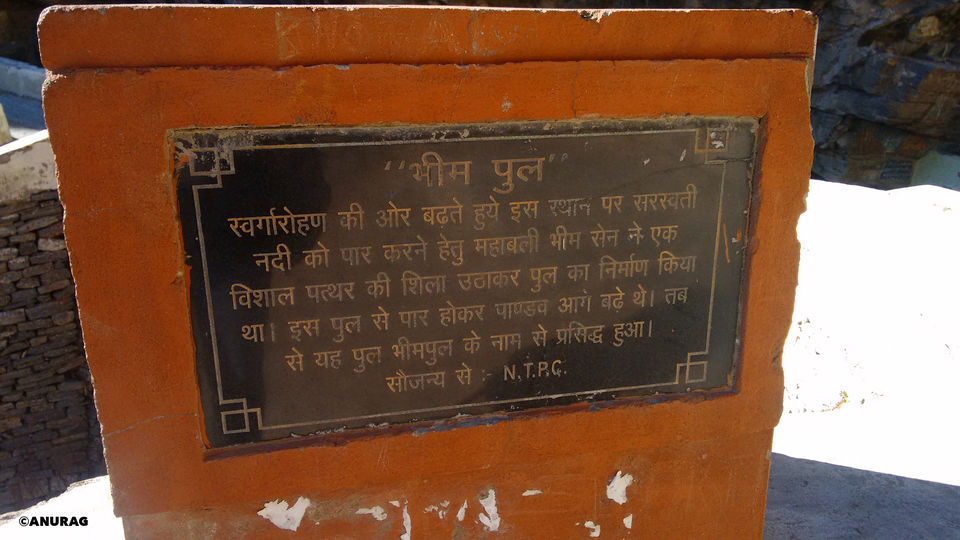 "भीम पुल"
स्वर्गारोहण की ओर बढ़ते हुये इस स्थान पर सरस्वती
नदी को पार करने हेतु महाबली भीम सेन ने एक
विशाल पत्थर की शिला उठाकर पुल का निर्माण किया
था। इस पुल से पार होकर पाण्डव आगे बढ़े थे। तब
से यह पुल भीमपुल के नाम से प्रसिद्ध हुआ।
सौजन्य से :- N.T.P.C.
©ANURAG